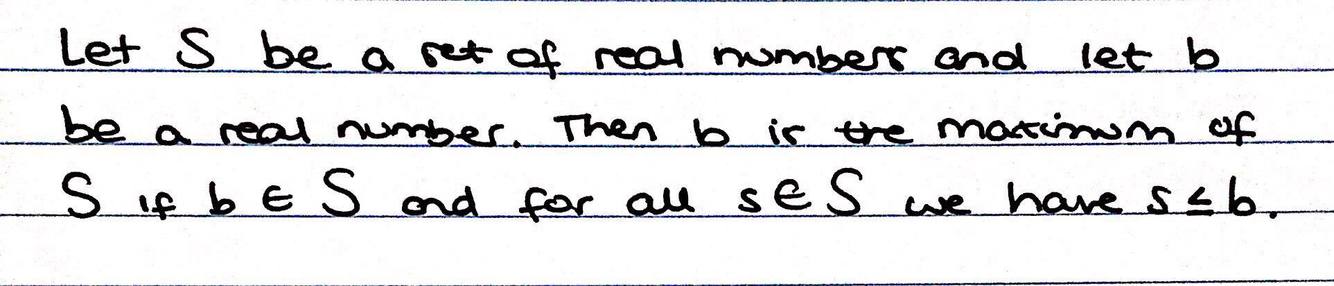 Let S be a set of real numbers and let b
be a real number. Then b is the maximum of
S if b ∈ S and for all s ∈ S we have s ≤ b.